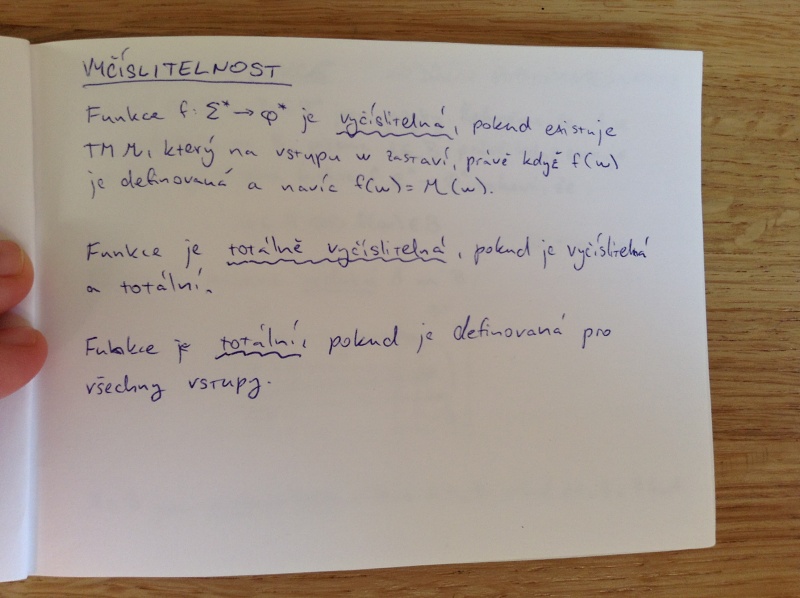 VYČÍSLITELNOST
Funkce f: Σ* → φ* je vyčíslitelná, pokud existuje
TM M, který na vstupu w zastaví, právě když f(w)
je definovaná a navíc f(w) = M(w).
Funkce je totálně vyčíslitelná, pokud je vyčíslitelná
a totální.
Funkce je totální, pokud je definovaná pro
všechny vstupy.